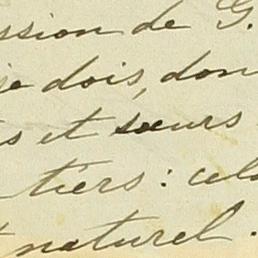 ssion de G.
je dois, don
s et sœurs
tiers : cela
naturel.